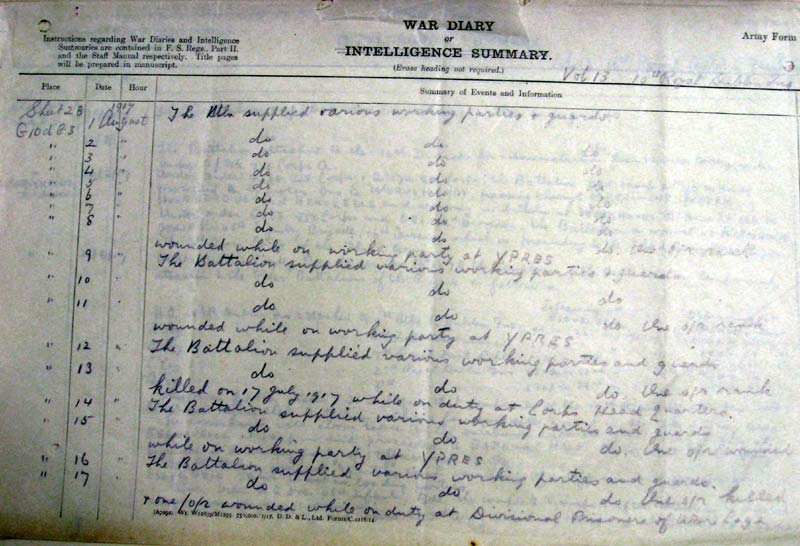 Instructions regarding War Diaries and Intelligence
Summaries are contained in F. S. Regs., Part II.
and the Staff Manual respectively. Title pages
will be prepared in manuscript.
WAR DIARY
or
INTELLIGENCE SUMMARY.
(Erase heading not required.)
Army Form
Vol 13 10th Royal Dublin Fus
Place Date Hour Summary of Events and Information
Sheet 28 1917
G10d 8.3 1 August " The Btn supplied various working parties & guards
" 2 " do do do
" 3 " do do do
" 4 " do do do
" 5 " do do do
" 6 " do do do
" 7 " do do do
" 8 " do do do. One o/r rank
wounded while on working party at YPRES
" 9 " The Battalion supplied various working parties & guards
" 10 " do do do
" 11 " do do do. One o/r rank
wounded while on working party at YPRES
" 12 " The Battalion supplied various working parties and guards
" 13 " do do do. One o/r rank
killed on 17 July 1917 while on duty at Corps Head Quarters.
" 14 " The Battalion supplied various working parties and guards
" 15 " do do do. One o/r wounded
while on working party at YPRES
" 16 " The Battalion supplied various working parties and guards.
" 17 " do do do, One o/r killed
& one o/r wounded while on duty at Divisional Prisoners of War Cage
D. D. & L., Ltd.